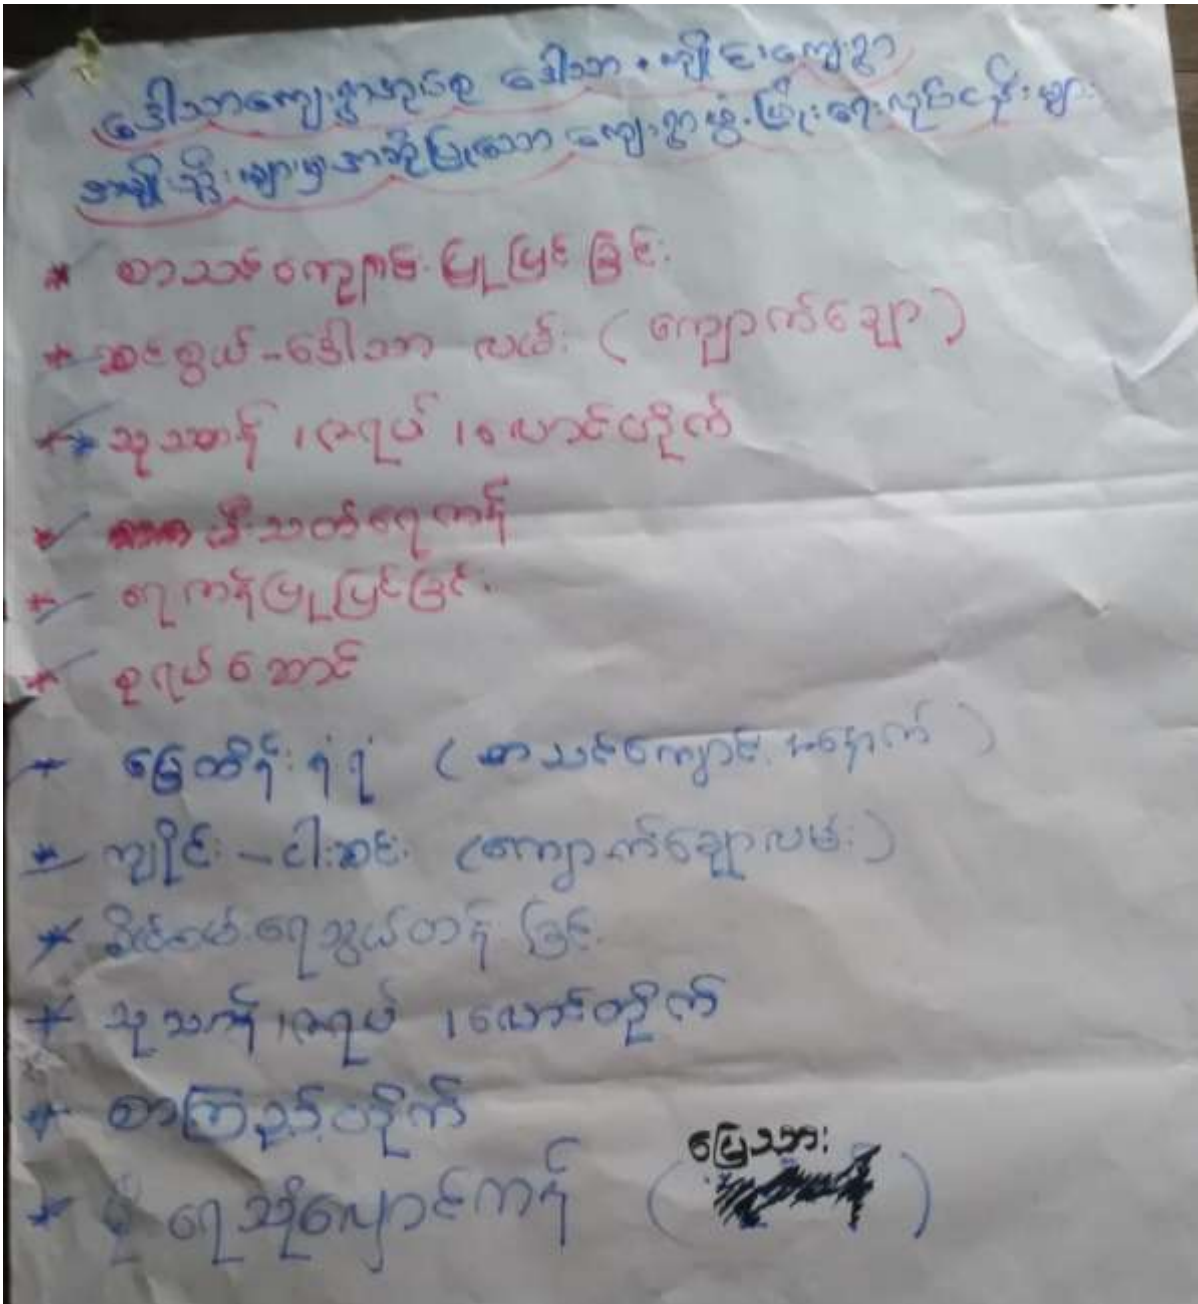 ဒေါသာကျေးရွာအုပ်စု ဒေါသာ၊ ကျိုင်းကျေးရွာ
အမျိုးသမီးများမှအဆိုပြုသော ကျေးရွာဖွံ့ဖြိုးရေးလုပ်ငန်းများ
* စာသင်ကျောင်းပြုပြင်ခြင်း
* ဆင်စွယ်-ဒေါသာ လမ်း (ကျောက်ချော)
* သုသာန် ၊ဇရပ် ၊လောင်တိုက်
* မီးသတ်ရေကန်
* ရေကန်ပြုပြင်ခြင်း
* စုရပ်ဆောင်
* မြေထိန်းနံရံ (စာသင်ကျောင်းအနောက်)
* ကျိုင်း-ငါးဆင်း (ကျောက်ချောလမ်း)
* ရေသွယ်တန်းခြင်း
* သုသာန် ၊ဇရပ် ၊လောင်တိုက်
* စာကြည့်တိုက်
* မိုးရေသိုလှောင်ကန် (မြေသား)